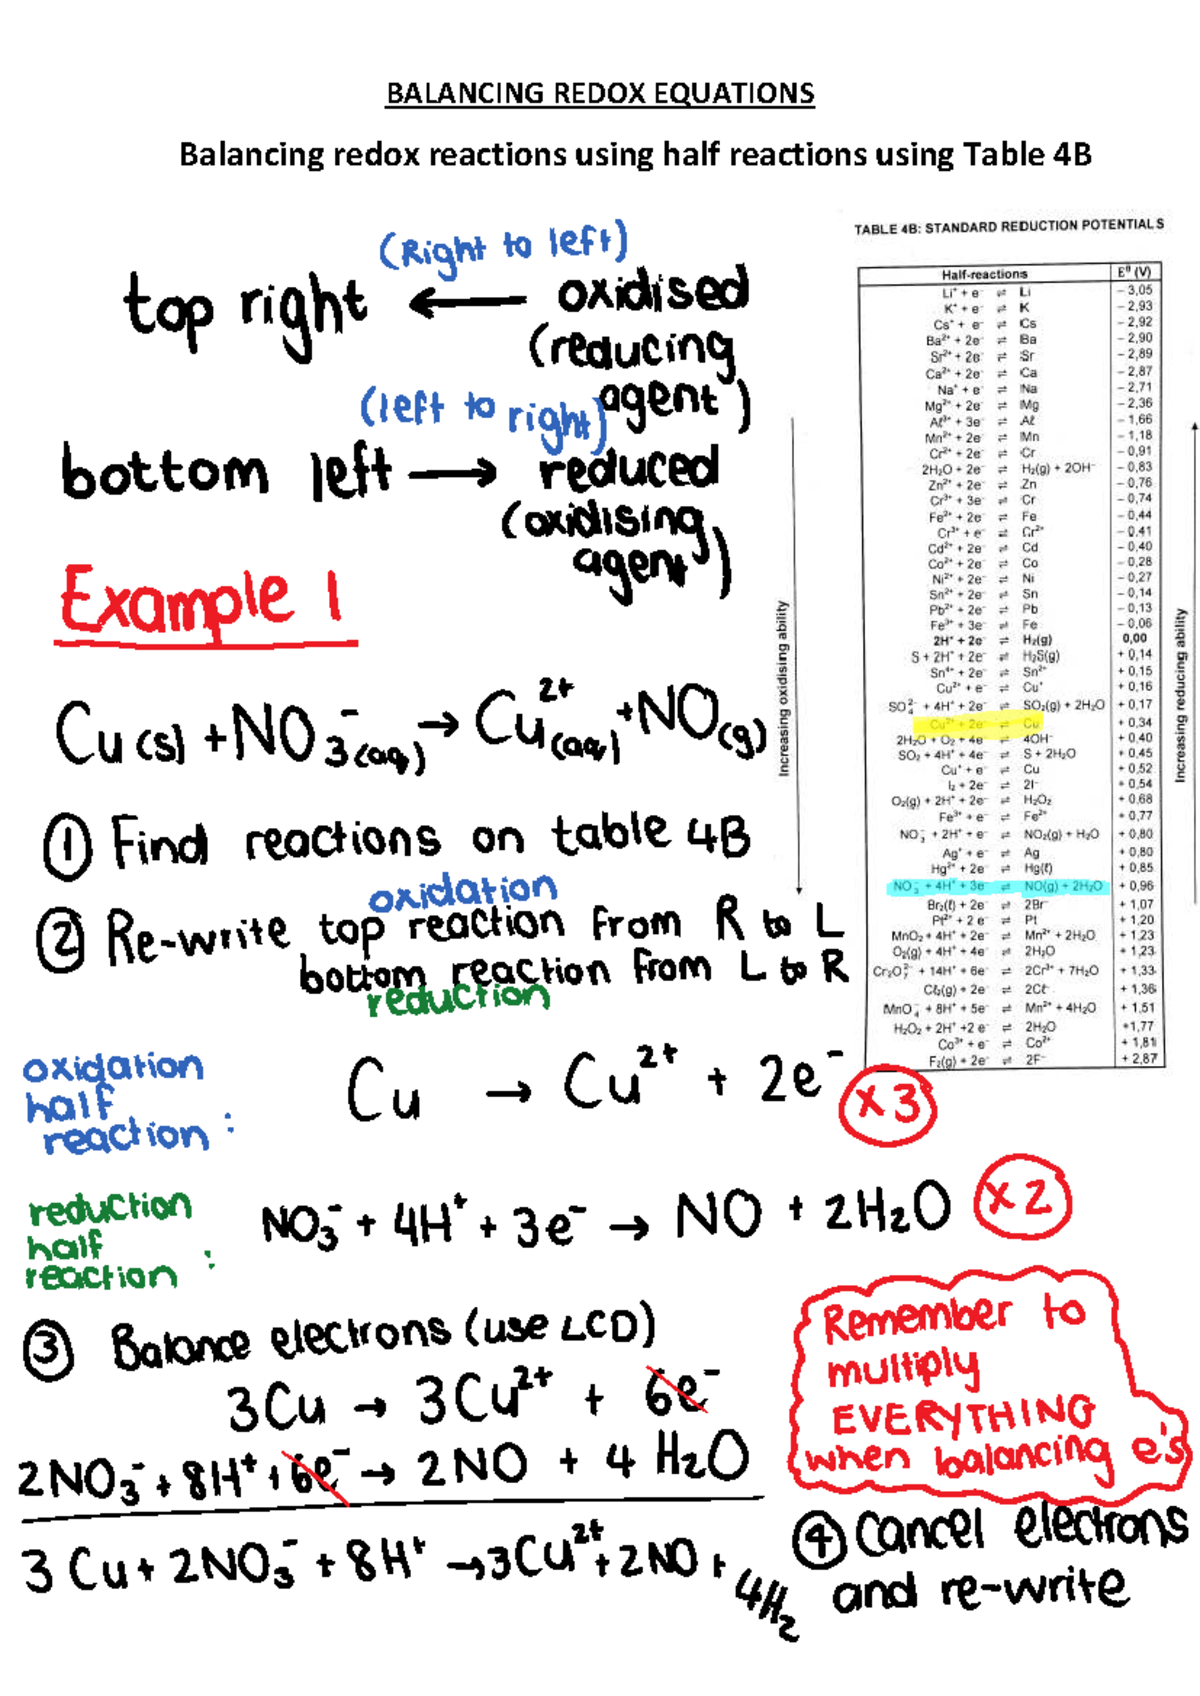 BALANCING REDOX EQUATIONS
Balancing redox reactions using half reactions using Table 4B
(Right to left)
top right ← oxidised
(reducing
agent)
(left to right)
bottom left → reduced
(oxidising
agent)
Example 1
Cu(s) + NO₃⁻(aq) → Cu²⁺(aq) + NO(g)
① Find reactions on table 4B
oxidation
② Re-write top reaction from R to L
bottom reaction from L to R
reduction
oxidation
half
reaction :
Cu → Cu²⁺ + 2e⁻ x3
reduction
half
reaction :
NO₃⁻ + 4H⁺ + 3e⁻ → NO + 2H₂O x2
③ Balance electrons (use LCD)
3Cu → 3Cu²⁺ + 6e⁻
2NO₃⁻ + 8H⁺ + 6e⁻ → 2NO + 4H₂O
3Cu + 2NO₃⁻ + 8H⁺ → 3Cu²⁺ + 2NO + 4H₂
Remember to
multiply
EVERYTHING
when balancing e's
④ Cancel electrons
and re-write
TABLE 4B: STANDARD REDUCTION POTENTIALS
Half-reactions E⁰ (V)
Li⁺ + e⁻ ⇌ Li − 3,05
K⁺ + e⁻ ⇌ K − 2,93
Cs⁺ + e⁻ ⇌ Cs − 2,92
Ba²⁺ + 2e⁻ ⇌ Ba − 2,90
Sr²⁺ + 2e⁻ ⇌ Sr − 2,89
Ca²⁺ + 2e⁻ ⇌ Ca − 2,87
Na⁺ + e⁻ ⇌ Na − 2,71
Mg²⁺ + 2e⁻ ⇌ Mg − 2,36
Aℓ³⁺ + 3e⁻ ⇌ Aℓ − 1,66
Mn²⁺ + 2e⁻ ⇌ Mn − 1,18
Cr²⁺ + 2e⁻ ⇌ Cr − 0,91
2H₂O + 2e⁻ ⇌ H₂(g) + 2OH⁻ − 0,83
Zn²⁺ + 2e⁻ ⇌ Zn − 0,76
Cr³⁺ + 3e⁻ ⇌ Cr − 0,74
Fe²⁺ + 2e⁻ ⇌ Fe − 0,44
Cr³⁺ + e⁻ ⇌ Cr²⁺ − 0,41
Cd²⁺ + 2e⁻ ⇌ Cd − 0,40
Co²⁺ + 2e⁻ ⇌ Co − 0,28
Ni²⁺ + 2e⁻ ⇌ Ni − 0,27
Sn²⁺ + 2e⁻ ⇌ Sn − 0,14
Pb²⁺ + 2e⁻ ⇌ Pb − 0,13
Fe³⁺ + 3e⁻ ⇌ Fe − 0,06
2H⁺ + 2e⁻ ⇌ H₂(g) 0,00
S + 2H⁺ + 2e⁻ ⇌ H₂S(g) + 0,14
Sn⁴⁺ + 2e⁻ ⇌ Sn²⁺ + 0,15
Cu²⁺ + e⁻ ⇌ Cu⁺ + 0,16
SO₄²⁻ + 4H⁺ + 2e⁻ ⇌ SO₂(g) + 2H₂O + 0,17
Cu²⁺ + 2e⁻ ⇌ Cu + 0,34
2H₂O + O₂ + 4e⁻ ⇌ 4OH⁻ + 0,40
SO₂ + 4H⁺ + 4e⁻ ⇌ S + 2H₂O + 0,45
Cu⁺ + e⁻ ⇌ Cu + 0,52
I₂ + 2e⁻ ⇌ 2I⁻ + 0,54
O₂(g) + 2H⁺ + 2e⁻ ⇌ H₂O₂ + 0,68
Fe³⁺ + e⁻ ⇌ Fe²⁺ + 0,77
NO₃⁻ + 2H⁺ + e⁻ ⇌ NO₂(g) + H₂O + 0,80
Ag⁺ + e⁻ ⇌ Ag + 0,80
Hg²⁺ + 2e⁻ ⇌ Hg(ℓ) + 0,85
NO₃⁻ + 4H⁺ + 3e⁻ ⇌ NO(g) + 2H₂O + 0,96
Br₂(ℓ) + 2e⁻ ⇌ 2Br⁻ + 1,07
Pt²⁺ + 2 e⁻ ⇌ Pt + 1,20
MnO₂ + 4H⁺ + 2e⁻ ⇌ Mn²⁺ + 2H₂O + 1,23
O₂(g) + 4H⁺ + 4e⁻ ⇌ 2H₂O + 1,23
Cr₂O₇²⁻ + 14H⁺ + 6e⁻ ⇌ 2Cr³⁺ + 7H₂O + 1,33
Cℓ₂(g) + 2e⁻ ⇌ 2Cℓ⁻ + 1,36
MnO₄⁻ + 8H⁺ + 5e⁻ ⇌ Mn²⁺ + 4H₂O + 1,51
H₂O₂ + 2H⁺ +2 e⁻ ⇌ 2H₂O +1,77
Co³⁺ + e⁻ ⇌ Co²⁺ + 1,81
F₂(g) + 2e⁻ ⇌ 2F⁻ + 2,87
Increasing oxidising ability
Increasing reducing ability